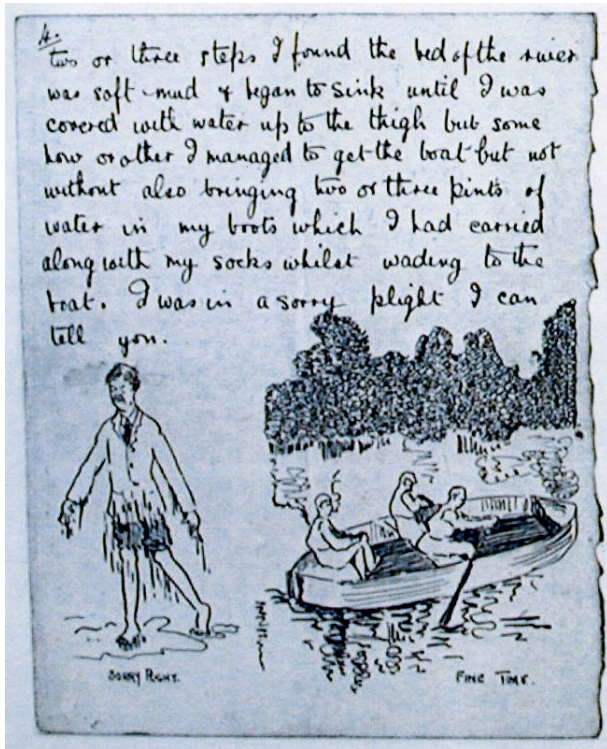 4.
two or three steps I found the bed of the river
was soft mud & began to sink until I was
covered with water up to the thigh but some
how or other I managed to get the boat but not
without also bringing two or three pints of
water in my boots which I had carried
along with my socks whilst wading to the
boat. I was in a sorry plight I can
tell you.
SORRY PLIGHT.
FINE TIME.